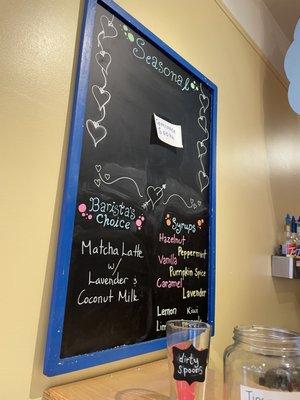 Seasonal
Barista's
Choice
Matcha Latte
w/
Lavender &
Coconut Milk
Syrups
Hazelnut
Peppermint
Vanilla
Pumpkin Spice
Caramel
Lavender
Lemon
Kiwi
Lime
dirty
spoons